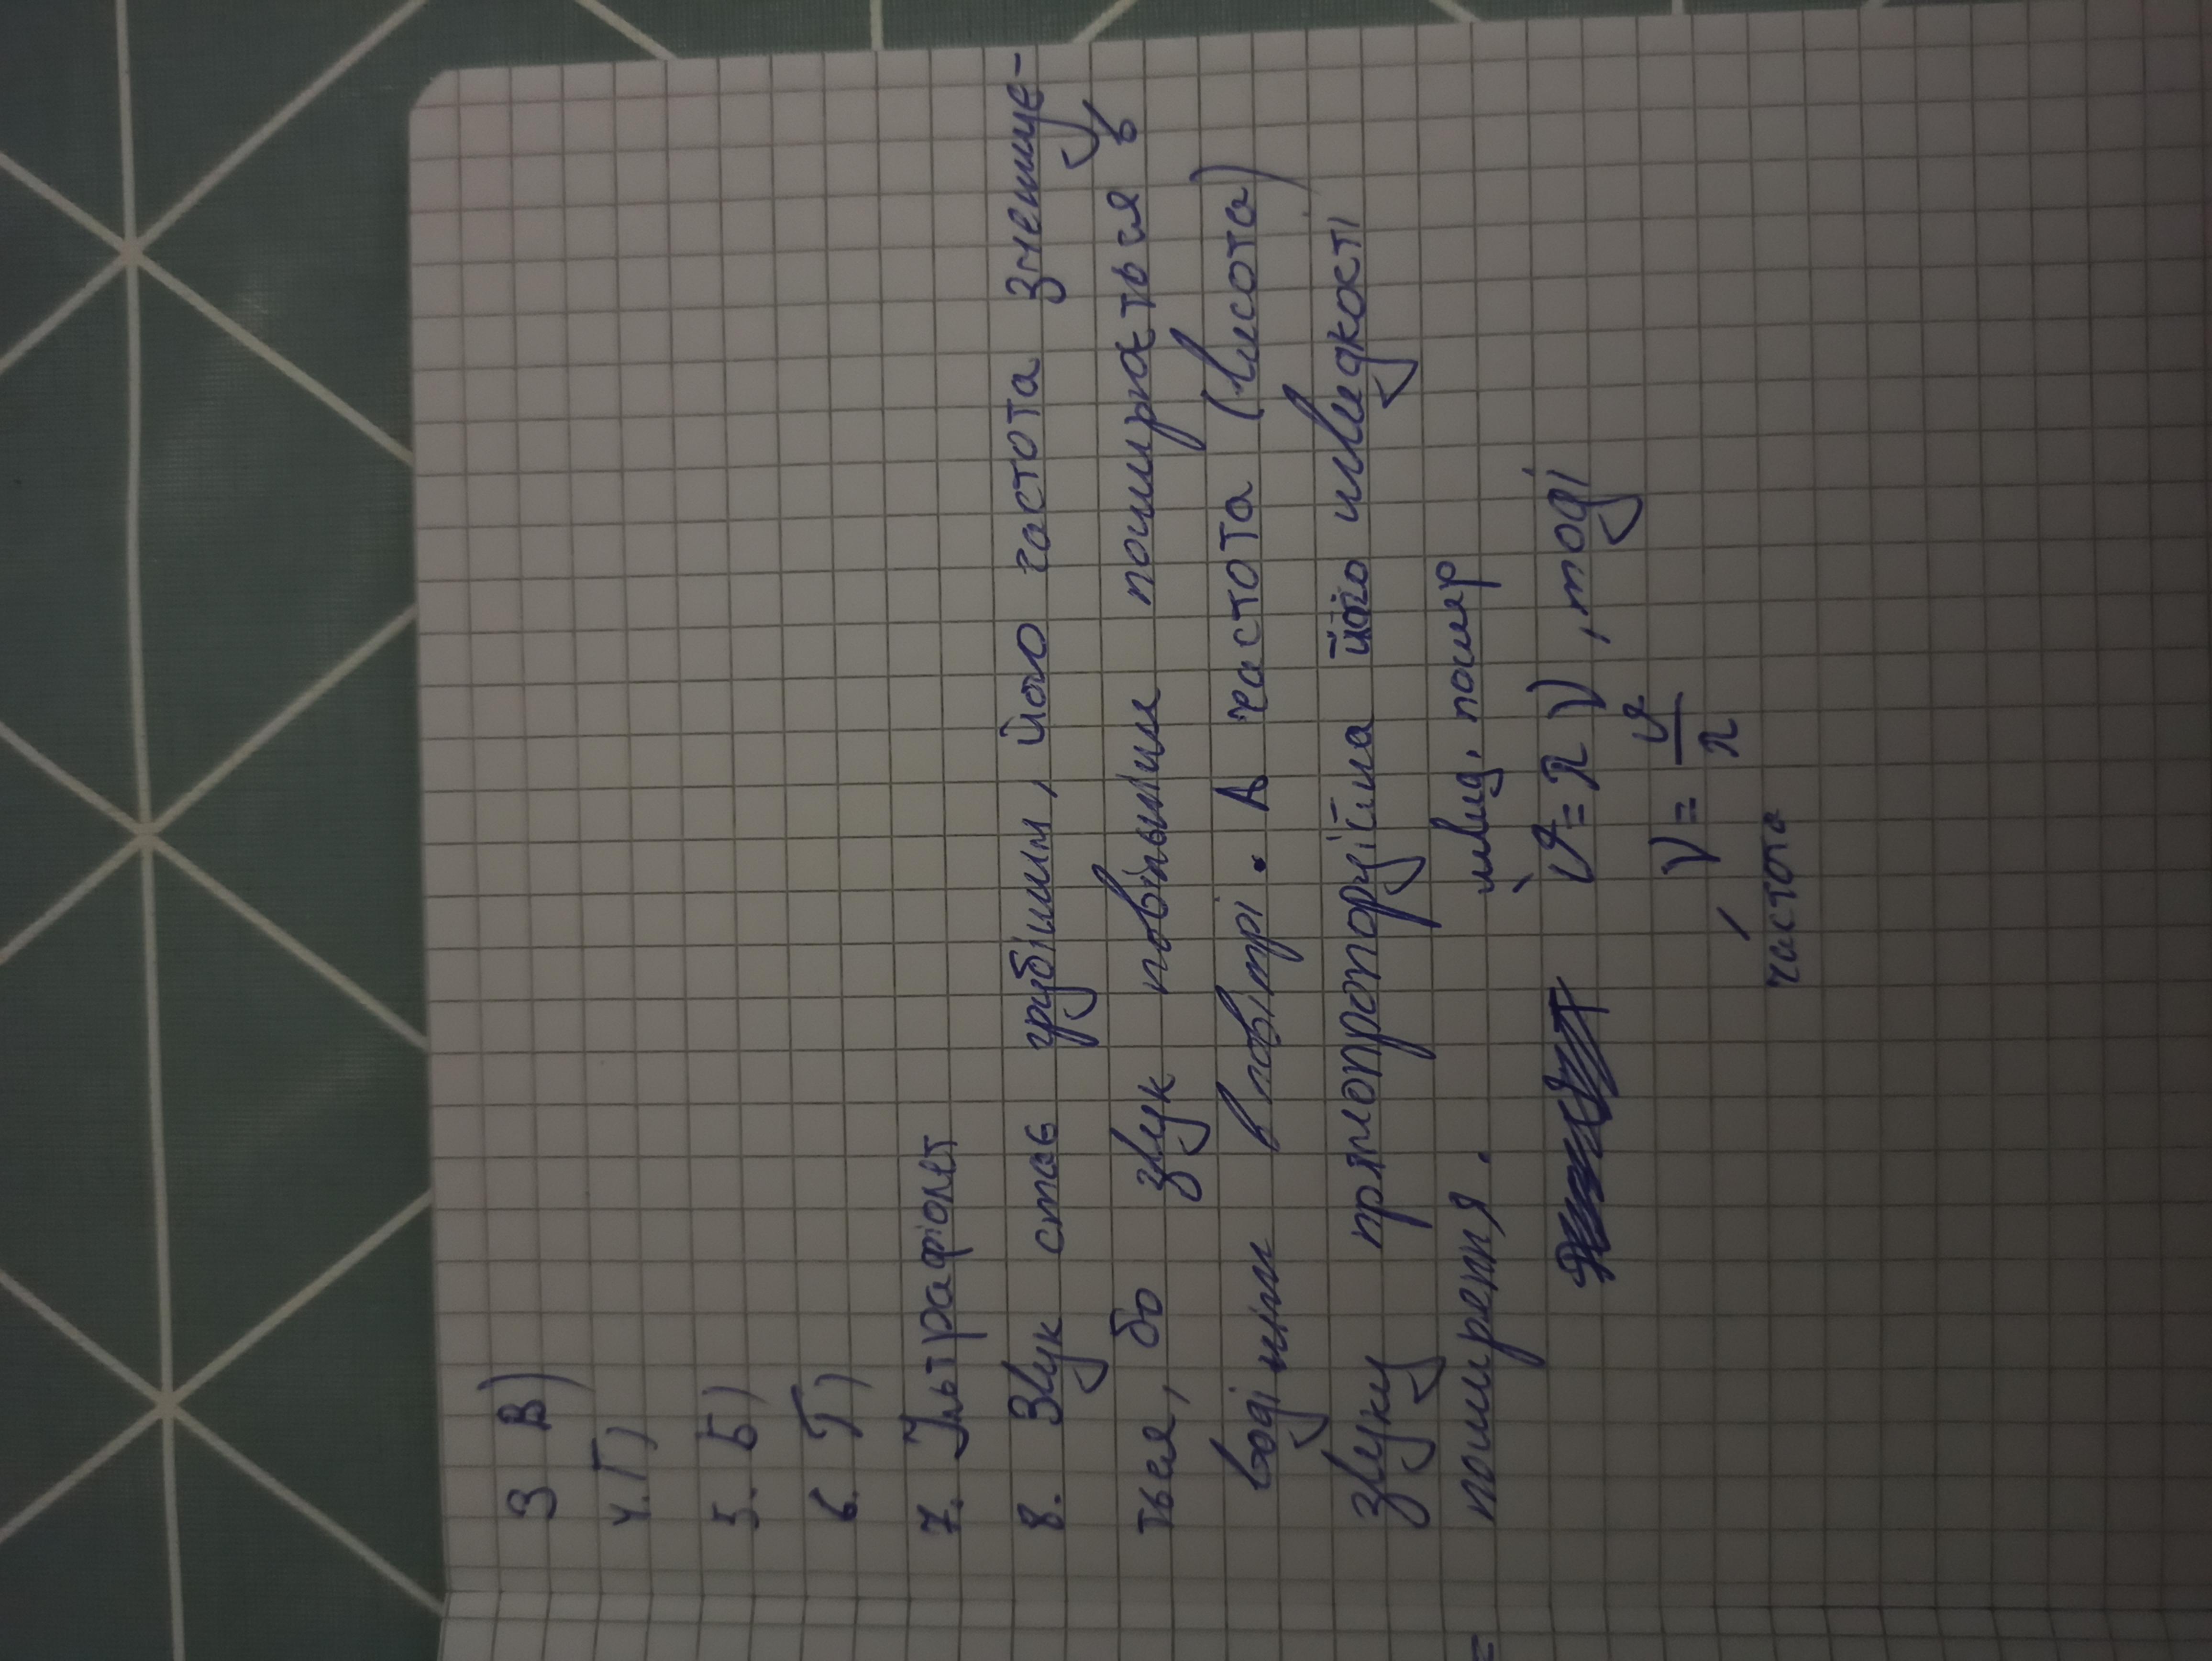 3 В)
4. Г)
5. Б)
6. Г)
7. Ультрафіолет
8. Звук стає грубішим, його частота зменшує-
ться, бо звук повільніше поширюється в
воді ніж в повітрі. А частота (висота)
звуку прямопропорційна його швидкості
поширення.
швид. пошир
υ = λ ν, тоді
ν = υ/λ
частота